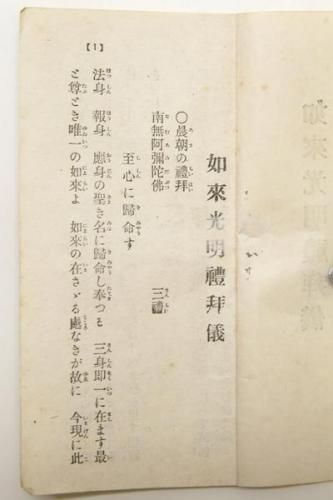 如來光明禮拜儀
〇晨朝の禮拜
南無阿彌陀佛　三禮
至心に歸命す
法身　報身　應身の聖き名に歸命し奉つる　三身即一に在ます最
と尊とき唯一の如來よ　如來の在さゞる處なきが故に　今現に此
【1】